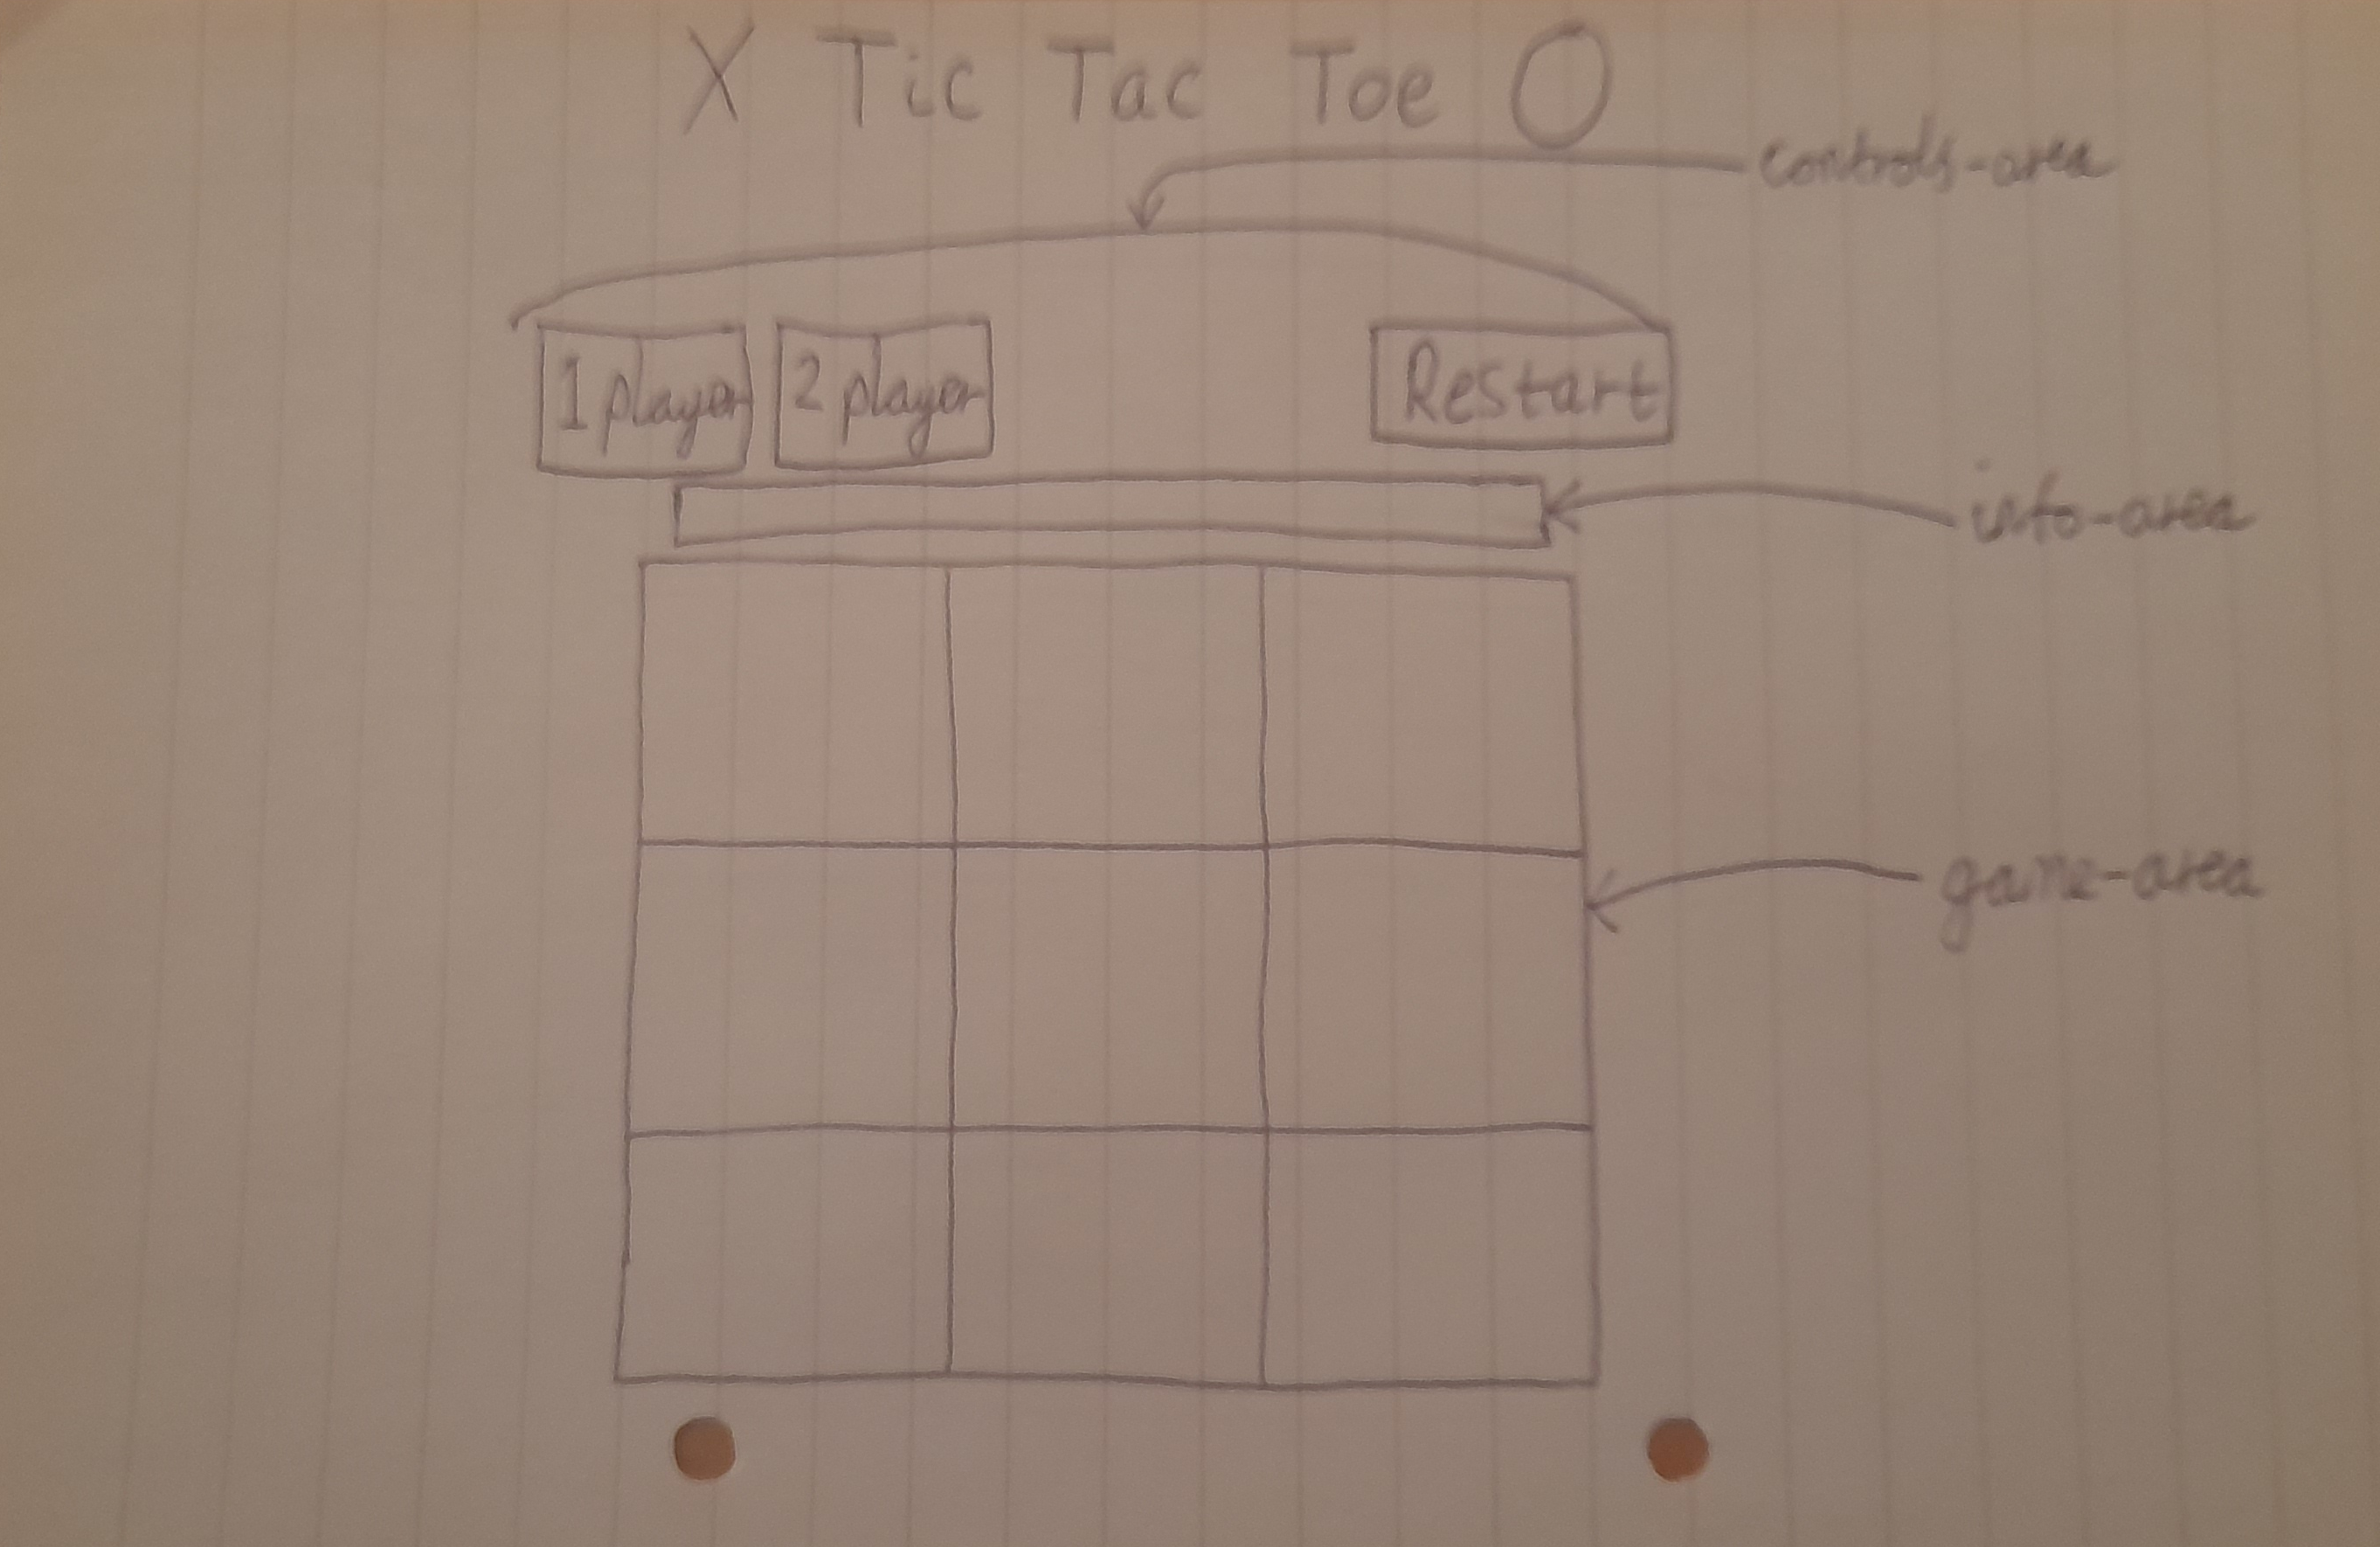 X Tic Tac Toe O
controls-area
1 player 2 player Restart
info-area
game-area